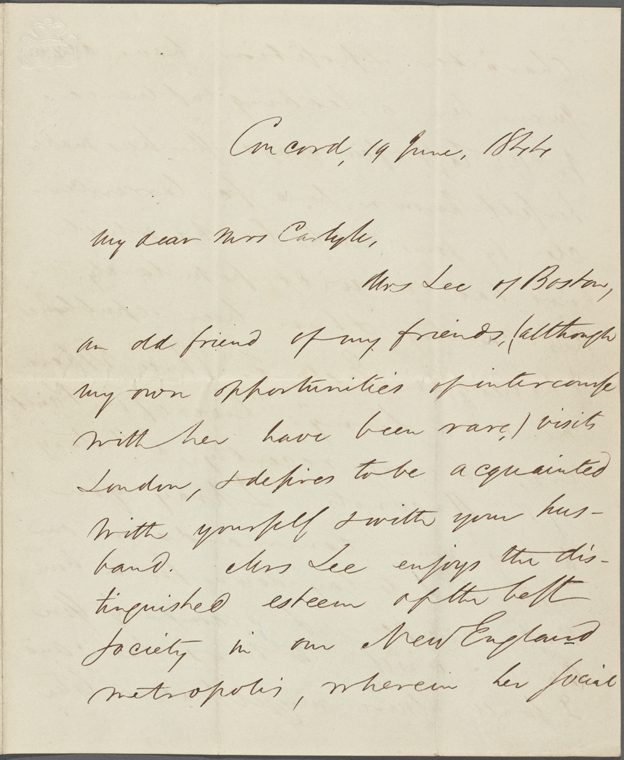 Concord, 19 June, 1844
My dear Mrs Carlyle,
Mrs Lee of Boston,
an old friend of my friends, (although
my own opportunities of intercourse
with her have been rare,) visits
London, & desires to be acquainted
with yourself & with your hus-
band. Mrs Lee enjoys the dis-
tinguished esteem of the best
society in our New England
metropolis, wherein her social